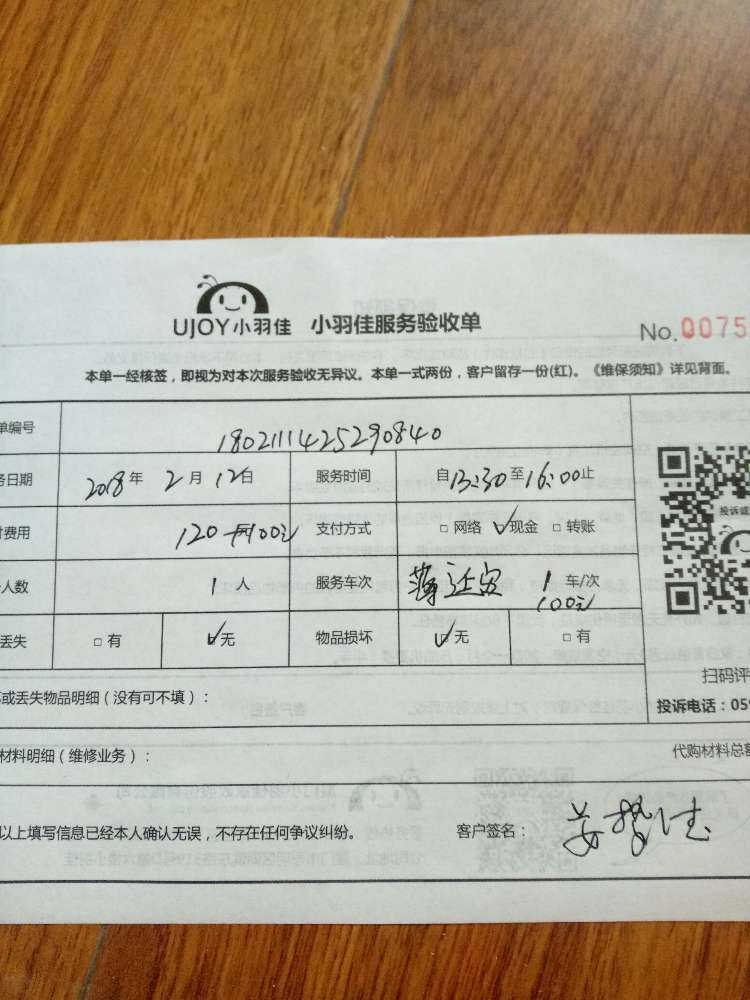 UJOY小羽佳 小羽佳服务验收单
No.0075
本单一经核签，即视为对本次服务验收无异议。本单一式两份，客户留存一份(红)。《维保须知》详见背面。
单编号 180211142529084０
务日期 2018年 2月 12日 服务时间 自13:30至16:00止
付费用 120 支付方式 □网络 ☑现金 □转账
人数 1人 服务车次 1 车/次
100元
丢失 □有 ☑无 物品损坏 ☑无 □有
投诉
扫码评
坏或丢失物品明细（没有可不填）：
投诉电话：059
材料明细（维修业务）：
代购材料总额
以上填写信息已经本人确认无误，不存在任何争议纠纷。 客户签名：